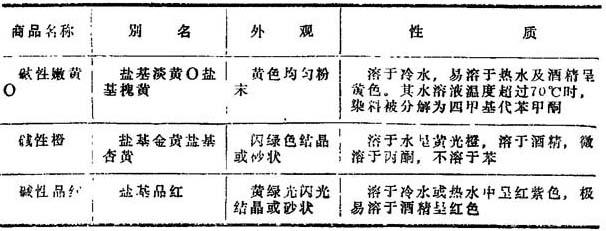 商品名称 别名 外观 性质
碱性嫩黄 盐基淡黄O盐 黄色均匀粉 溶于冷水,易溶于热水及酒精呈
O 基槐黄 末 黄色。其水溶液温度超过70℃时,
染料被分解为四甲基代苯甲酮
碱性橙 盐基金黄盐基 闪绿色结晶 溶于水呈黄光橙,溶于酒精,微
杏黄 或砂状 溶于丙酮,不溶于苯
碱性品红 盐基品红 黄绿光闪光 溶于冷水或热水中呈红紫色,极
结晶或砂状 易溶于酒精呈红色